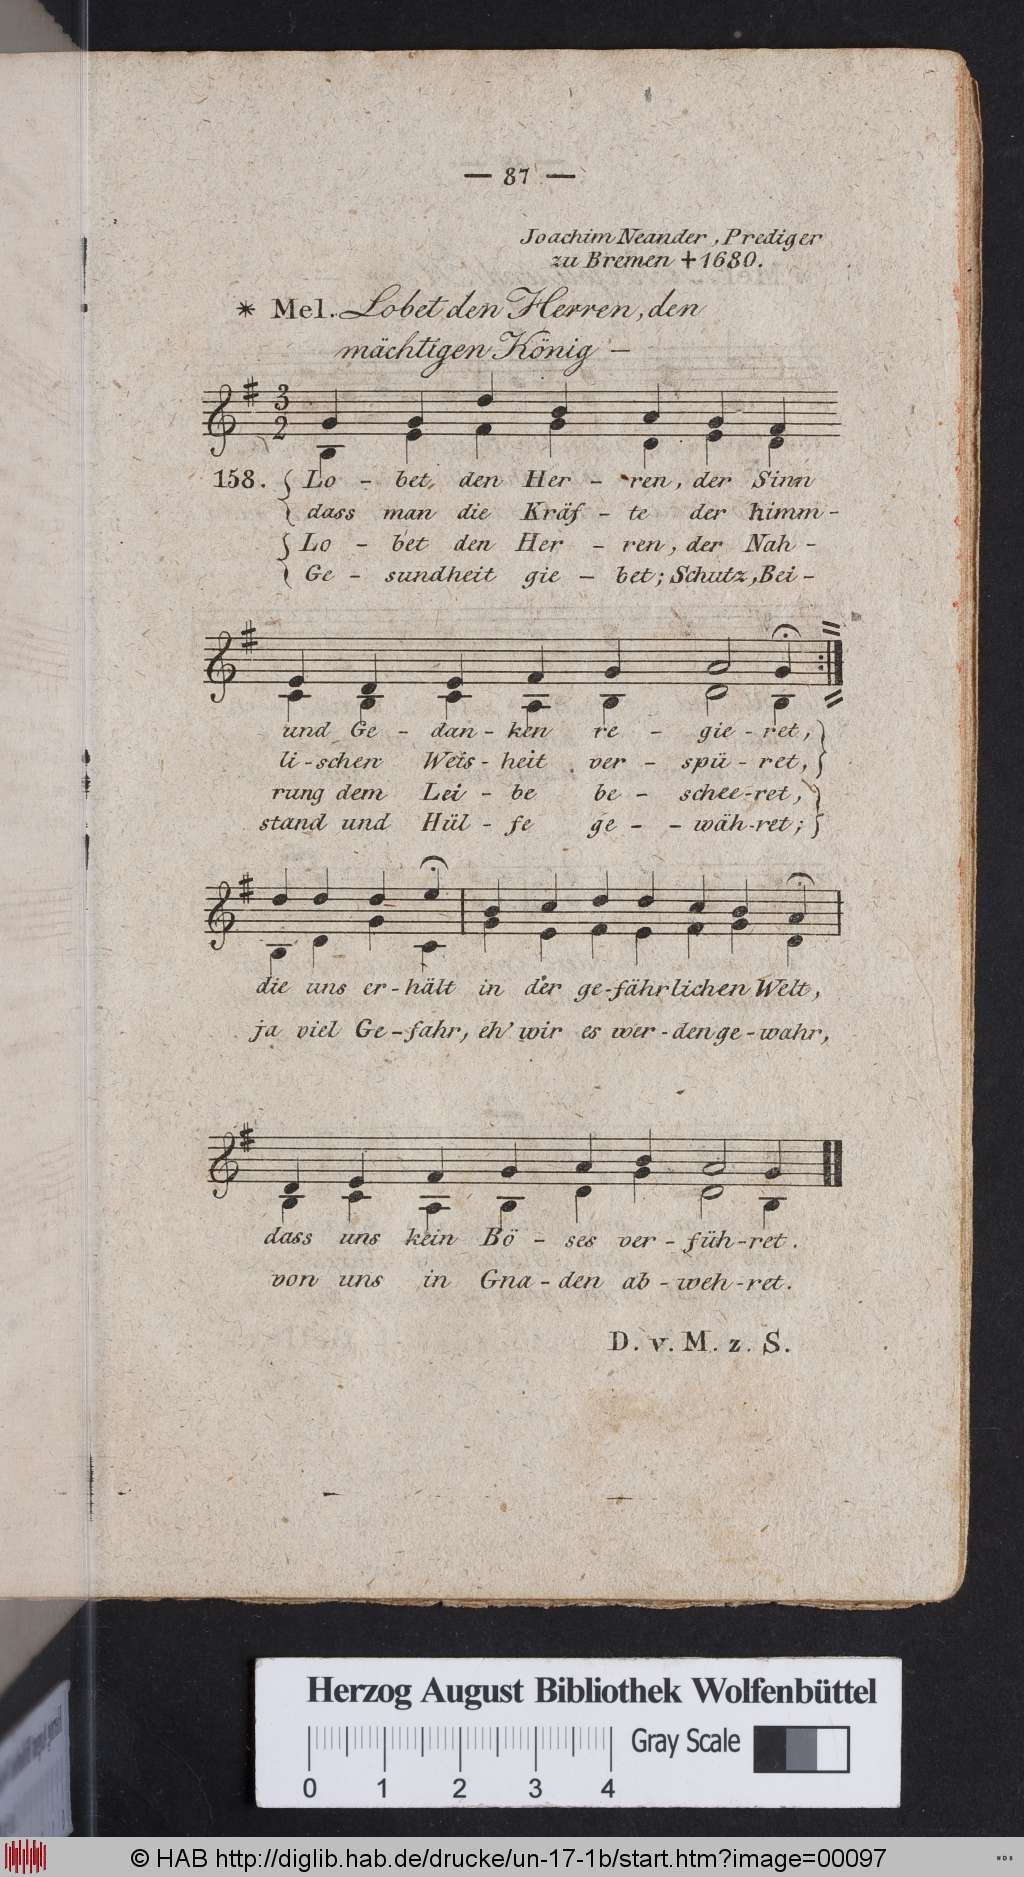 — 87 —
Joachim Neander, Prediger
zu Bremen ✝ 1680.
* Mel. Lobet den Herren, den
mächtigen König —
3
2
158. { Lo - bet den Her - ren, der Sinn
dass man die Kräf - te der himm -
{ Lo - bet den Her - ren, der Nah -
Ge - sundheit gie - bet; Schutz, Bei -
und Ge - dan - ken re - gie - ret, }
li - schen Weis - heit ver - spü - ret,
rung dem Lei - be be - schee - ret, }
stand und Hül - fe ge - - wäh - ret;
die uns er - hält in der ge - fährlichen Welt,
ja viel Ge - fahr, eh' wir es wer - den ge - wahr,
dass uns kein Bö - ses ver - füh - ret.
von uns in Gna - den ab - weh - ret.
D. v. M. z. S.
Herzog August Bibliothek Wolfenbüttel
Gray Scale
0 1 2 3 4
© HAB http://diglib.hab.de/drucke/un-17-1b/start.htm?image=00097